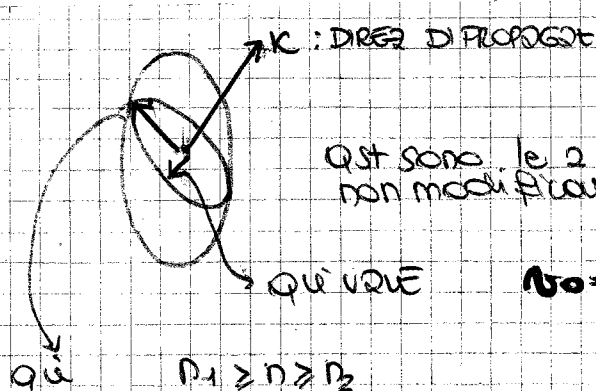 K : DIREZ DI PROPAGAZ
QST sono le 2
non modificav
QUI VALE No=
QUI n1 ≥ n ≥ n2